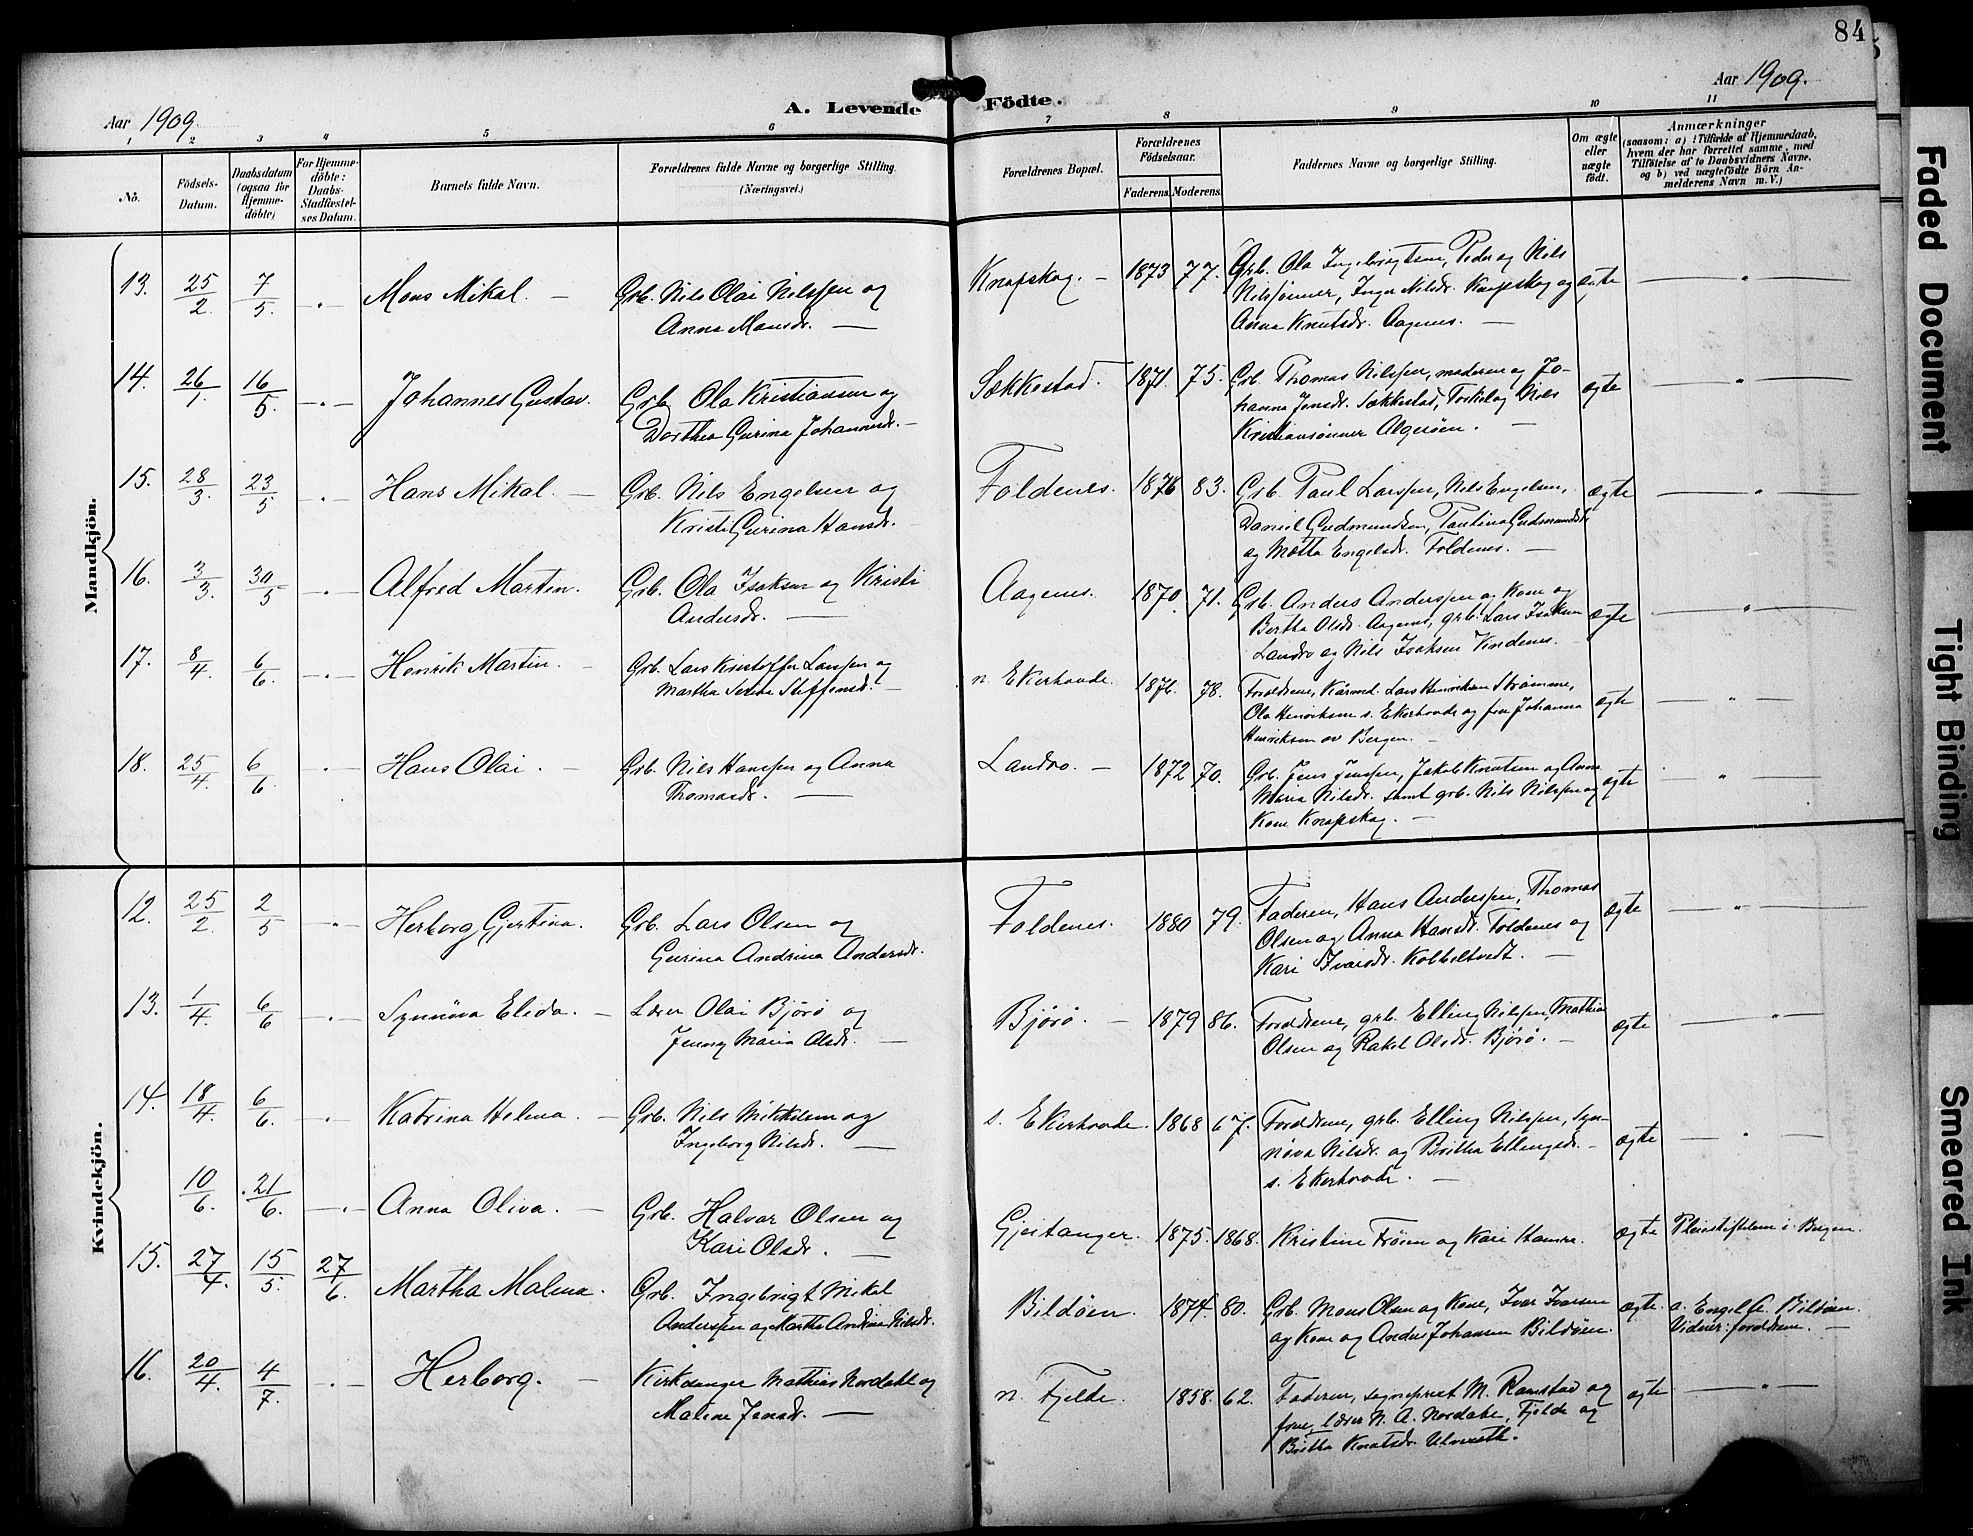 84
Aar 1909.
A. Levende Födte.
Aar 1909.
1 2 3 4 5 6 7 8 9 10 11
No.
Födsels-
Datum.
Daabsdatum
(ogsaa for
Hjemme-
döbte)
For Hjemme-
döbte:
Daabs-
Stadfæstel-
ses Datum.
Barnets fulde Navn.
Forældrenes fulde Navne og borgerlige Stilling
(Næringsvei.)
Forældrenes Bopæl.
Forældrenes
Födselsaar.
Faderens. Moderens.
Faddernes Navne og borgerlige Stilling.
Om ægte
eller
uægte
födt.
Anmærkninger
(saasom: a) i Tilfælde af Hjemmedaab,
hvem der har forrettet samme, med
Tilföielse af to Daabsvidners Navne,
og b) ved uægtefödte Börn An-
melderens Navn m. V.)
Mandkjön.
13. 25/2. 7/5. Mons Mikal. Grb. Nils Olai Nilssen og
Anna Monsdr.
Knapskog. 1873 77. Grb. Ola Ingebrigtsen, Peder og Nils
Nilssønner, Inga Nilsdr. Knapskog og
Anna Knutsdr. Aagenes.
ægte
14. 26/1. 16/5. Johannes Gustav. Grb. Ola Kristiansen og
Dorthea Gurina Johannesdr.
Sækkestad. 1871. 75. Grb. Thomas Nilssen, moderen og Jo-
hanna Jensdr. Sækkestad, Torkel og Nils
Kristiansønner Algerøen.
ægte
15. 28/3. 23/5 Hans Mikal. Grb. Nils Engelsen og
Kristi Gurina Hansdr.
Foldenes. 1876 83. Grb. Paul Larssen, Nils Engelsen,
Daniel Gudmundsen, Paulina Gudmundsdr.
og Metta Engelsdr. Foldenes.
ægte
16. 3/3. 30/5 Alfred Martin. Grb. Ola Isaksen og Kristi
Andersdr.
Aagenes. 1870. 71. Grb. Anders Anderssen og Kone og
Bertha Olsdr. Aagenes, grb. Lars Isaksen
Landro og Nils Isaksen Vindenes.
ægte
17. 8/4. 6/6. Henrik Martin. Grb. Lars Kristoffer Larssen og
Martha Steffensd.
n. Ekerhovde. 1876. 78. Forældrene, Kårmd. Lars Henriksen Strømme,
Ola Henriksen s. Ekerhovde og fru Johanna
Henriksen av Bergen.
ægte
18. 25/4. 6/6. Hans Olai. Grb. Nils Hanssen og Anna
Thomasdr.
Landro. 1872 70. Grb. Jens Jenssen, Jakob Knutsen og Anna
Maria Nilsdr. samt grb. Nils Nilssen og
Kone Knapskog.
ægte
Kvindekjön.
12. 25/2. 2/5 Herborg Gjertina. Grb. Lars Olsen og
Gurina Andrina Andersdr.
Foldenes. 1880 79. Faderen, Hans Anderssen, Thomas
Olsen og Anna Hansdr. Foldenes og
Kari Ivarsdr. Kobbeltvedt.
ægte
13. 1/4. 6/6 Synnøva Elida. Lærer Olai Bjørø og
Jenny Maria Olsdr.
Bjørø. 1879 86. Forældrene, grb. Elling Nilssen, Mathias
Olsen og Rakel Olsdr. Bjørø.
ægte
14. 18/4. 6/6. Katrina Helena. Grb. Nils Mikkelsen og
Ingeborg Nilsdr.
s. Ekerhovde. 1868 67. Forældrene, grb. Elling Nilssen, Syn-
nøva Nilsdr. og Britha Ellingsdr.
s. Ekerhovde.
ægte
10/6. 21/6. Anna Oliva. Grb. Halvor Olsen og
Kari Olsdr.
Gjeitanger. 1875. 1868. Kristine Frøien og Kari Hamre. ægte Pleiestiftelsen i Bergen.
15. 27/4. 15/5. 27/6. Martha Malena. Grb. Ingebrigt Mikal
Anderssen og Martha Andrina Nilsdr.
Bildøen. 1874. 80. Grb. Mons Olsen og Kone, Ivar Ivarsen
og Kone og Anders Johansen Bildøen.
ægte. a. Engel A. Bildøen.
Vidner: forældrene.
16. 20/4. 4/7. Herborg. Kirkesanger Mathias Nordahl og
Malene Jensdr.
n. Fjelde. 1858. 62. Faderen, sogneprest M. Ramstad og
frue, lærer N. A. Nordahl, Fjelde og
Britha Knutsdr. Ulveseth.
ægte
Faded Document
Tight Binding
Smeared Ink